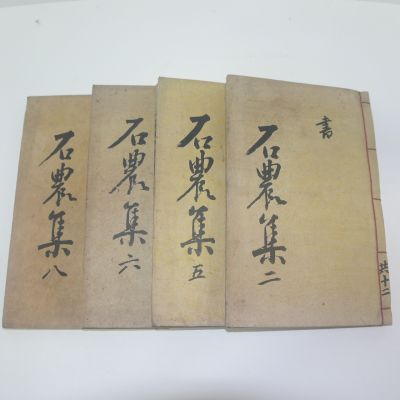 書
石農集二
共十二
石農集五
石農集六
石農集八